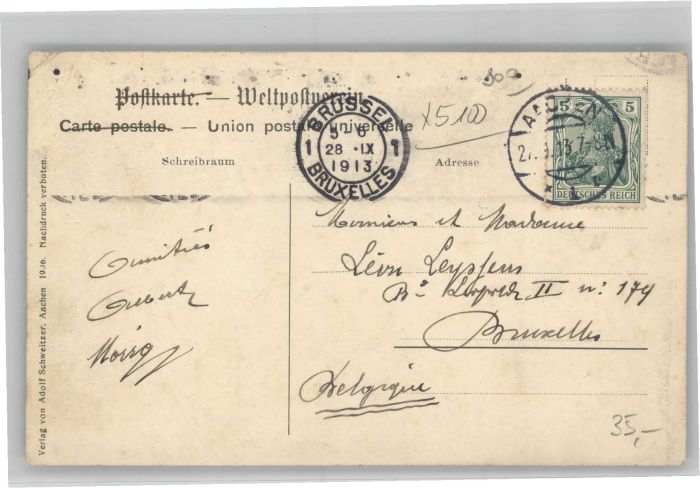 Postkarte. — Weltpostverein
Carte postale. — Union postale universelle
Schreibraum
Adresse
300
X5100
BRUSSEL
1 5-6 1
28 -IX
1913
BRUXELLES
AACHEN
27. 9. 13. 7-8N
5 5
DEUTSCHES REICH
Monsieur et Madame
Léon Leyssens
Bd Léopold II n: 179
Bruxelles
Belgique
Amitiés
Verlag von Adolf Schweitzer, Aachen 1906. Nachdruck verboten.
35,-